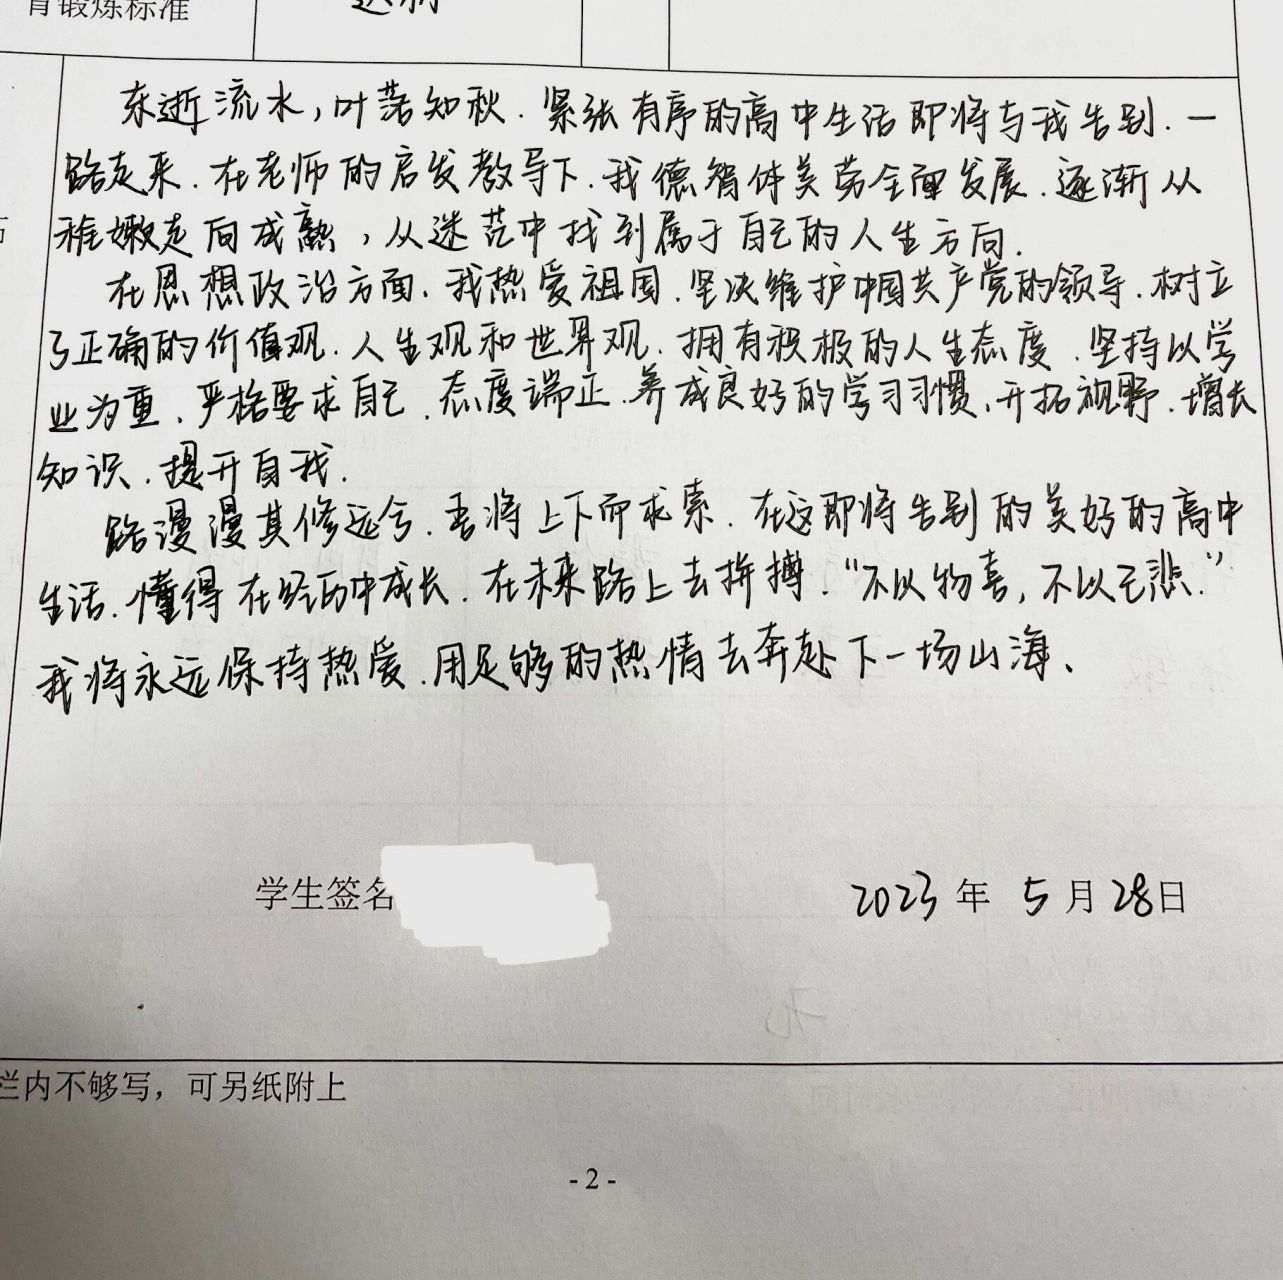 育锻炼标准
东逝流水，叶落知秋．紧张有序的高中生活即将与我告别．一
路走来．在老师的启发教导下．我德智体美劳全面发展．逐渐从
稚嫩走向成熟，从迷茫中找到属于自己的人生方向．
在思想政治方面．我热爱祖国．坚决维护中国共产党的领导．树立
了正确的价值观．人生观和世界观．拥有积极的人生态度．坚持以学
业为重．严格要求自己．态度端正．养成良好的学习习惯、开拓视野．增长
知识．提升自我．
路漫漫其修远兮．吾将上下而求索．在这即将告别的美好的高中
生活．懂得在经历中成长．在未来路上去拼搏．“不以物喜，不以己悲．”
我将永远保持热爱．用足够的热情去奔赴下一场山海、
学生签名
2023 年 5 月 28 日
栏内不够写，可另纸附上
- 2 -